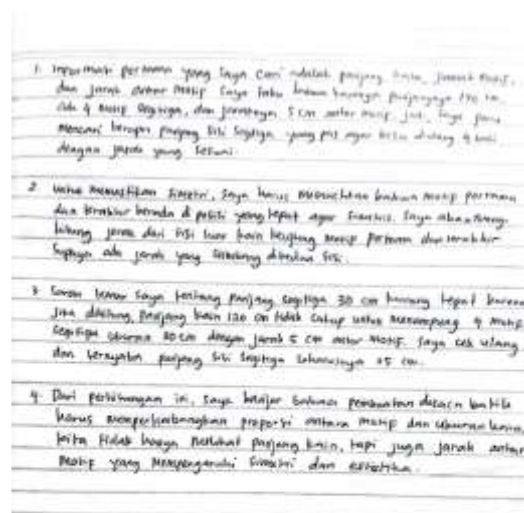 1. Informasi pertama yang saya cari adalah panjang kain, jumlah motif,
dan jarak antar motif. Saya tahu bahwa kainnya panjangnya 120 cm,
ada 4 motif segitiga, dan jaraknya 5 cm antar motif. Jadi, saya perlu
mencari berapa panjang sisi segitiga yang pas agar bisa diulang 4 kali
dengan jarak yang sesuai.
2. Untuk memastikan simetri, saya harus memastikan bahwa motif pertama
dan terakhir berada di posisi yang tepat agar simetris. Saya akan meng-
hitung jarak dari sisi luar kain ke motif pertama dan terakhir
supaya ada jarak yang seimbang dikedua sisi.
3. Saran teman saya tentang panjang segitiga 30 cm kurang tepat karena
jika dihitung, panjang kain 120 cm tidak cukup untuk menampung 4 motif
segitiga ukuran 30 cm dengan jarak 5 cm antar motif. Saya cek ulang
dan ternyata panjang sisi segitiga seharusnya 25 cm.
4. Dari perhitungan ini, saya belajar bahwa pembuatan desain batik
harus mempertimbangkan proporsi antara motif dan ukuran kain.
kita tidak hanya melihat panjang kain, tapi juga jarak antar
motif yang mempengaruhi simetri dan estetika.